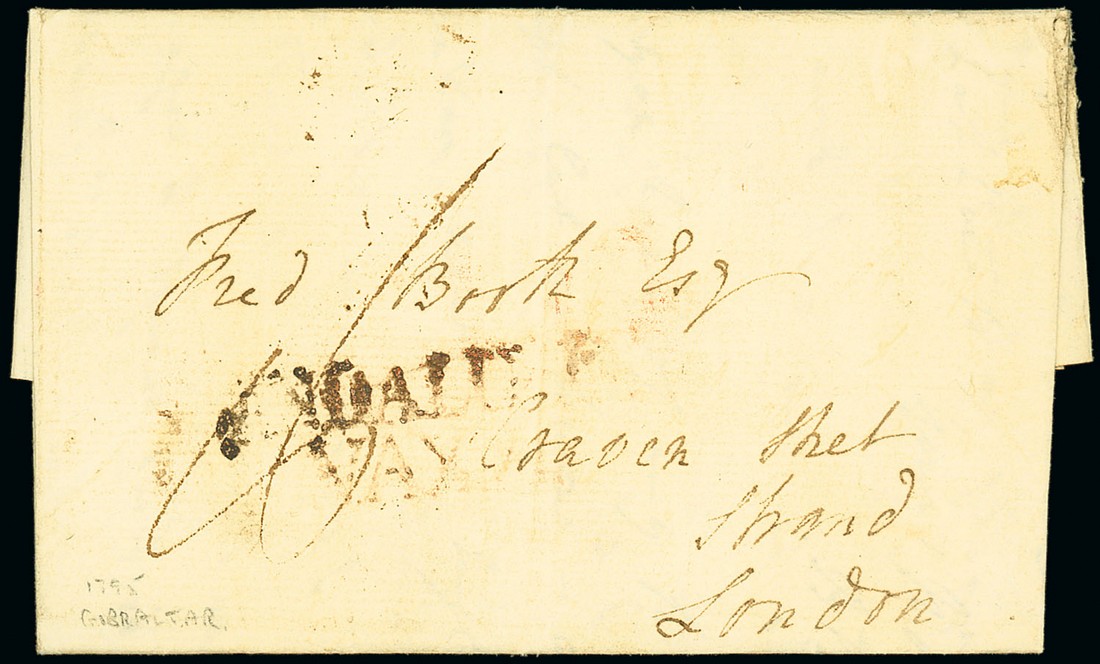 Fred Booth Esq
ANDALU
BAXA
Craven Street
Strand
London
1795
GIBRALTAR.